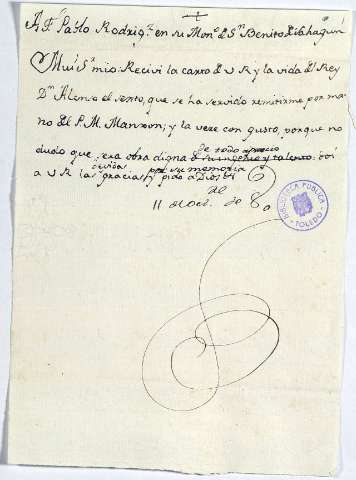 A F. Pablo Rodrigz. en su Mono. de Sn. Benito
Mui Sr. mio. Recivi la carta de V R y la vida del Rey
Dn. Alonso el sexto, que se ha servido remitirme por ma-
no del P. M. Manzon; y la veré con gusto, porque no
de todo aprecio
dudo que será obra digna de su ingenio y talento. doi
devidas por su memoria
a V R las gracias, y pido a Dios
de
11 de Oct. de 80
BIBLIOTECA PÚBLICA
TOLEDO